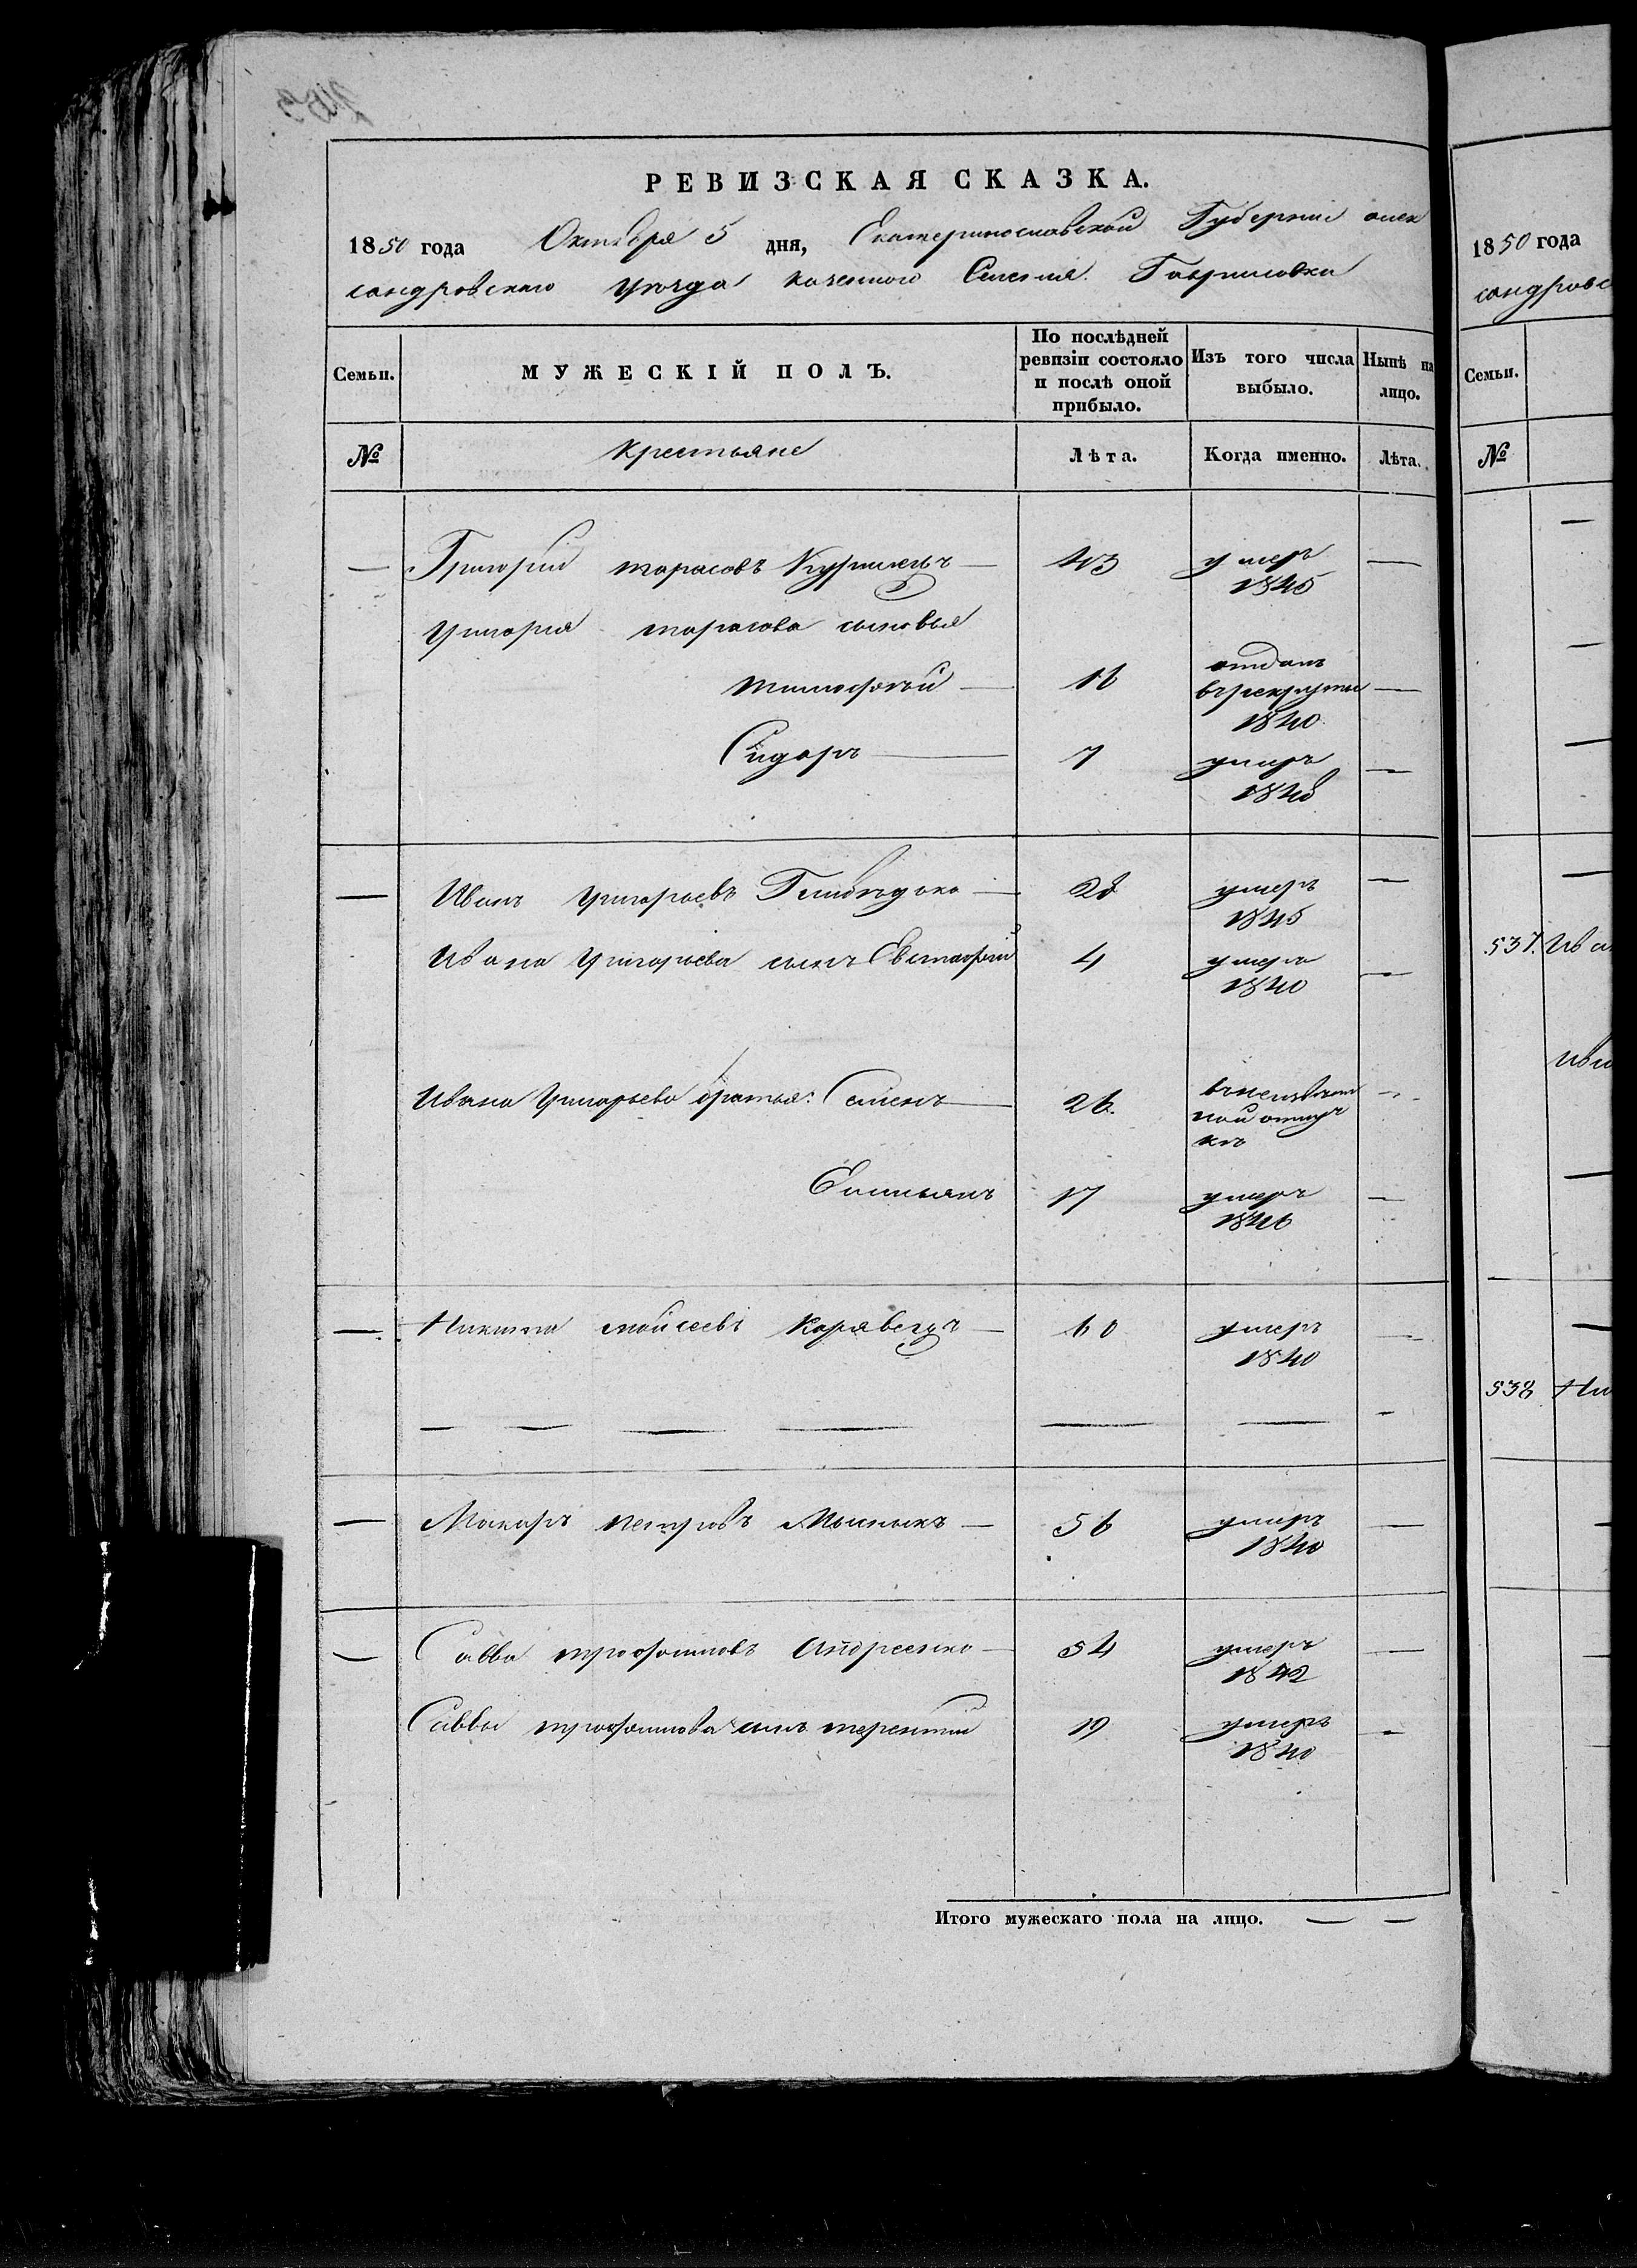 РЕВИЗСКАЯ СКАЗКА.
1850 года Октября 5 дня, Екатеринославской Губерніи алек
сандровскаго уезда казенного Селения Гавриловки
Семьи.
МУЖЕСКІЙ ПОЛЪ.
По послѣдней
ревизіи состояло
и послѣ оной
прибыло.
Изъ того числа
выбыло.
Нынѣ на
лицо.
№
крестьяне
Лѣта.
Когда именно.
Лѣта.
— Григорий тарасовъ — 43 умеръ —
1845
Григория тарасова сыновья
тимофей — 16 отданъ
въ рекруты —
1840
Сидоръ — 7 умеръ —
1848
— Иванъ Григорьевъ — 28 умеръ —
1845
Ивана Григорьева сынъ Евстафий 4 умеръ —
1840
Ивана Григорьева братья: Семенъ — 26. въ неизвѣст —
ной отлуч
кѣ
Емельянъ 17 умеръ —
1846
— Никита мойсеевъ Корявецъ — 60 умеръ —
1840
— — — — — — —
— Макаръ петровъ — 56 умеръ —
1840
— Савва трофимовъ Андреенко — 54 умеръ —
1842
Саввы трофимова сынъ терентий 19 умеръ —
1840
Итого мужескаго пола на лицо. — —
1850 года
сандровс
Семьи.
№
537. Ива
Ива
538 Ни